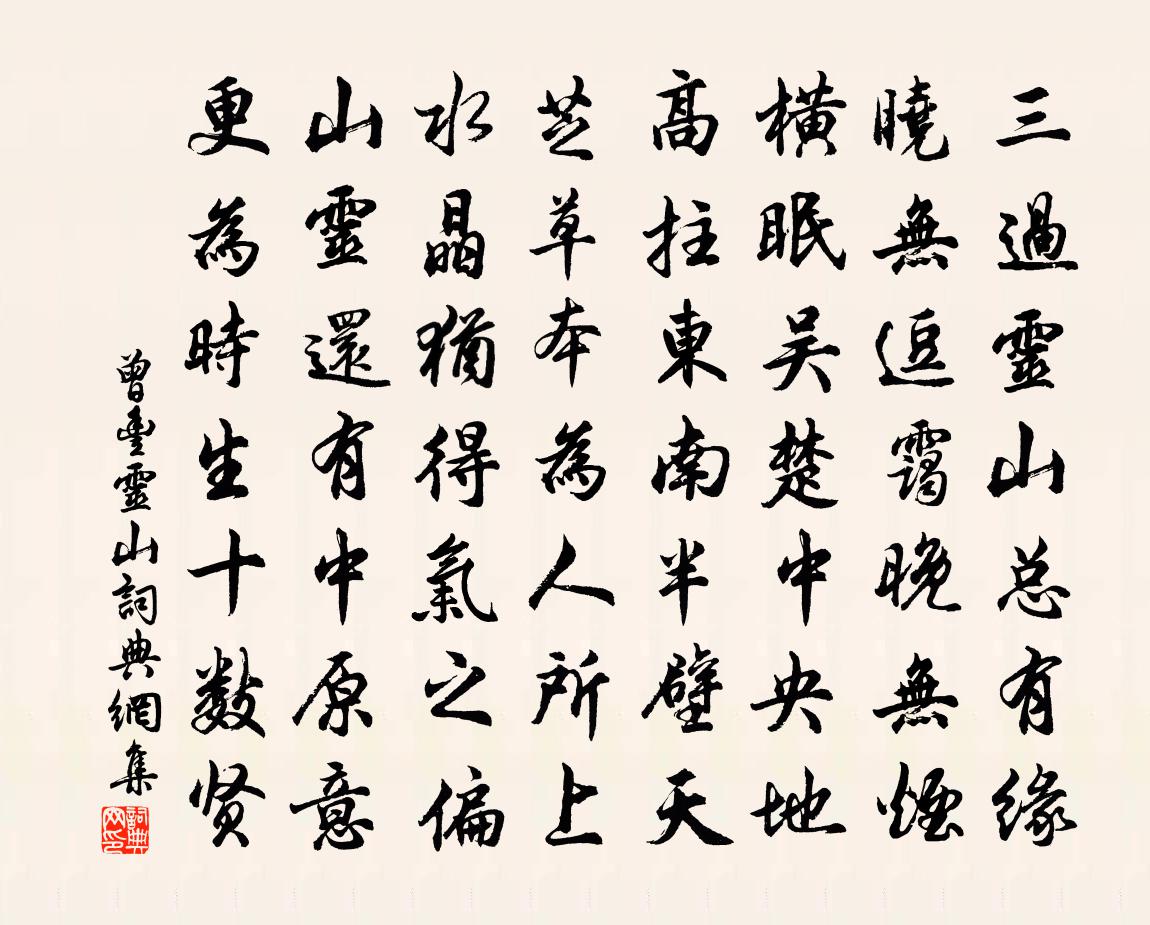 三過靈山总有缘
曉無逗靄晚無煙
橫眠吴楚中央地
高拄東南半壁天
芝草本為人所上
水晶猶得氣之偏
山靈還有中原意
更為時生十数贤
曾豊靈山詞典網集
詞典网印